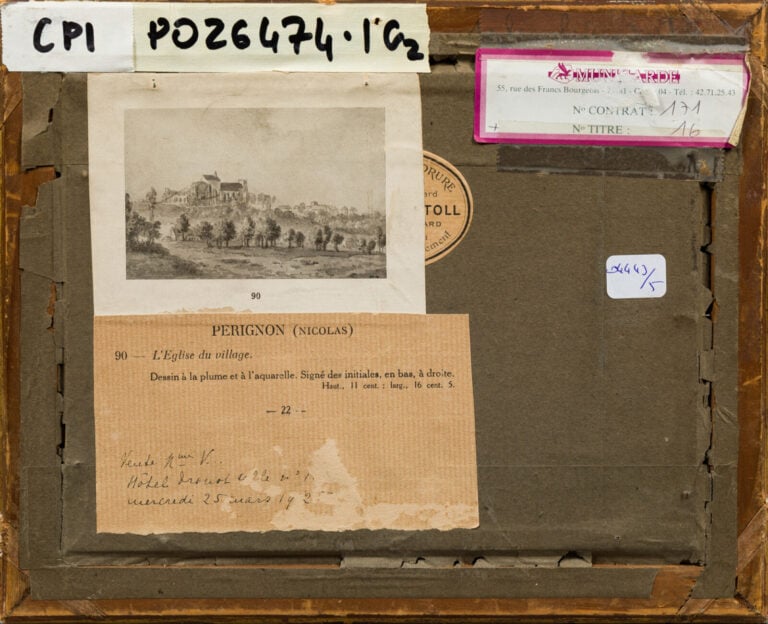 CPI PO26474.1G2
MUNIGARDE
55, rue des Francs Bourgeois - 04 - Tél. : 42.71.25.43
No CONTRAT : 171
No TITRE : 16
DORURE
TOLL
90
04443/5
PERIGNON (NICOLAS)
90 — L'Eglise du village.
Dessin à la plume et à l'aquarelle. Signé des initiales, en bas, à droite.
Haut., 11 cent. ; larg., 16 cent. 5.
— 22 —
Vente Mme V..
Hôtel Drouot salle n° 1.
mercredi 25 mars 192